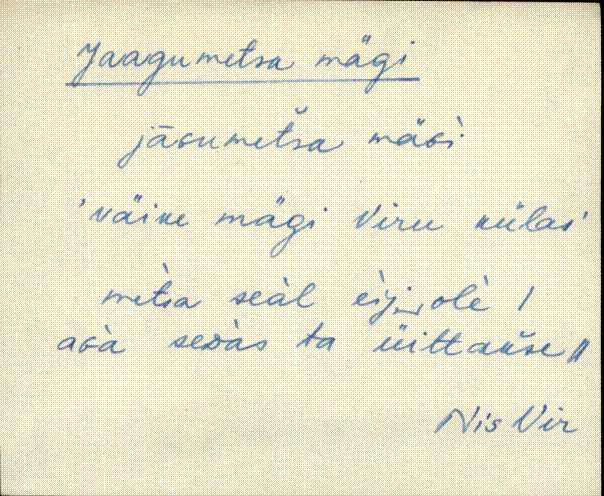 Jaagumetsa mägi
jāɢumetša mäɢi
'väike mägi Viru külas'
mètsa seàl èij‿olè /
aɢà seʙàs ta üittakše //
Nis Vir